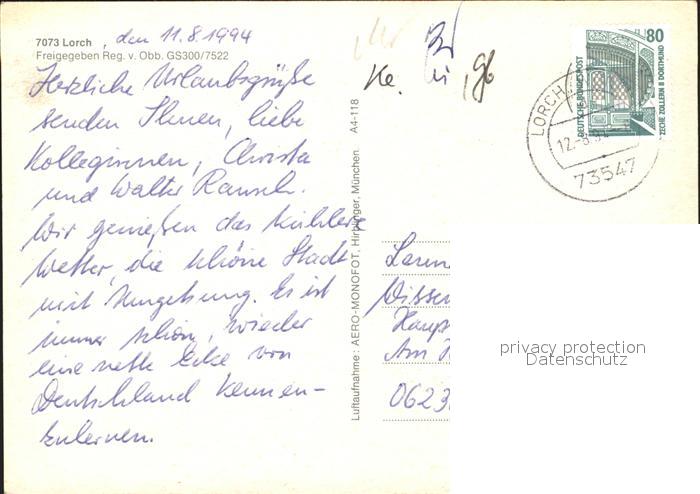 7073 Lorch, den 11.8.1994
Freigegeben Reg. v. Obb. GS300/7522
Herzliche Urlaubsgrüße
senden Ihnen, liebe
Kolleginnen, Christa
und Walter Rausch.
Wir genießen das kühlere
Wetter, die schöne Stadt
mit Umgebung. Es ist
immer schön, wieder
eine nette Ecke von
Deutschland kennen-
zulernen.
Luftaufnahme: AERO-MONOFOT, Hirblinger, München A4-118
80
DEUTSCHE BUNDESPOST
ZECHE ZOLLERN II DORTMUND
LORCH
12.-8.9
73547
Wissen
Haup
Am
0623
privacy protection
Datenschutz